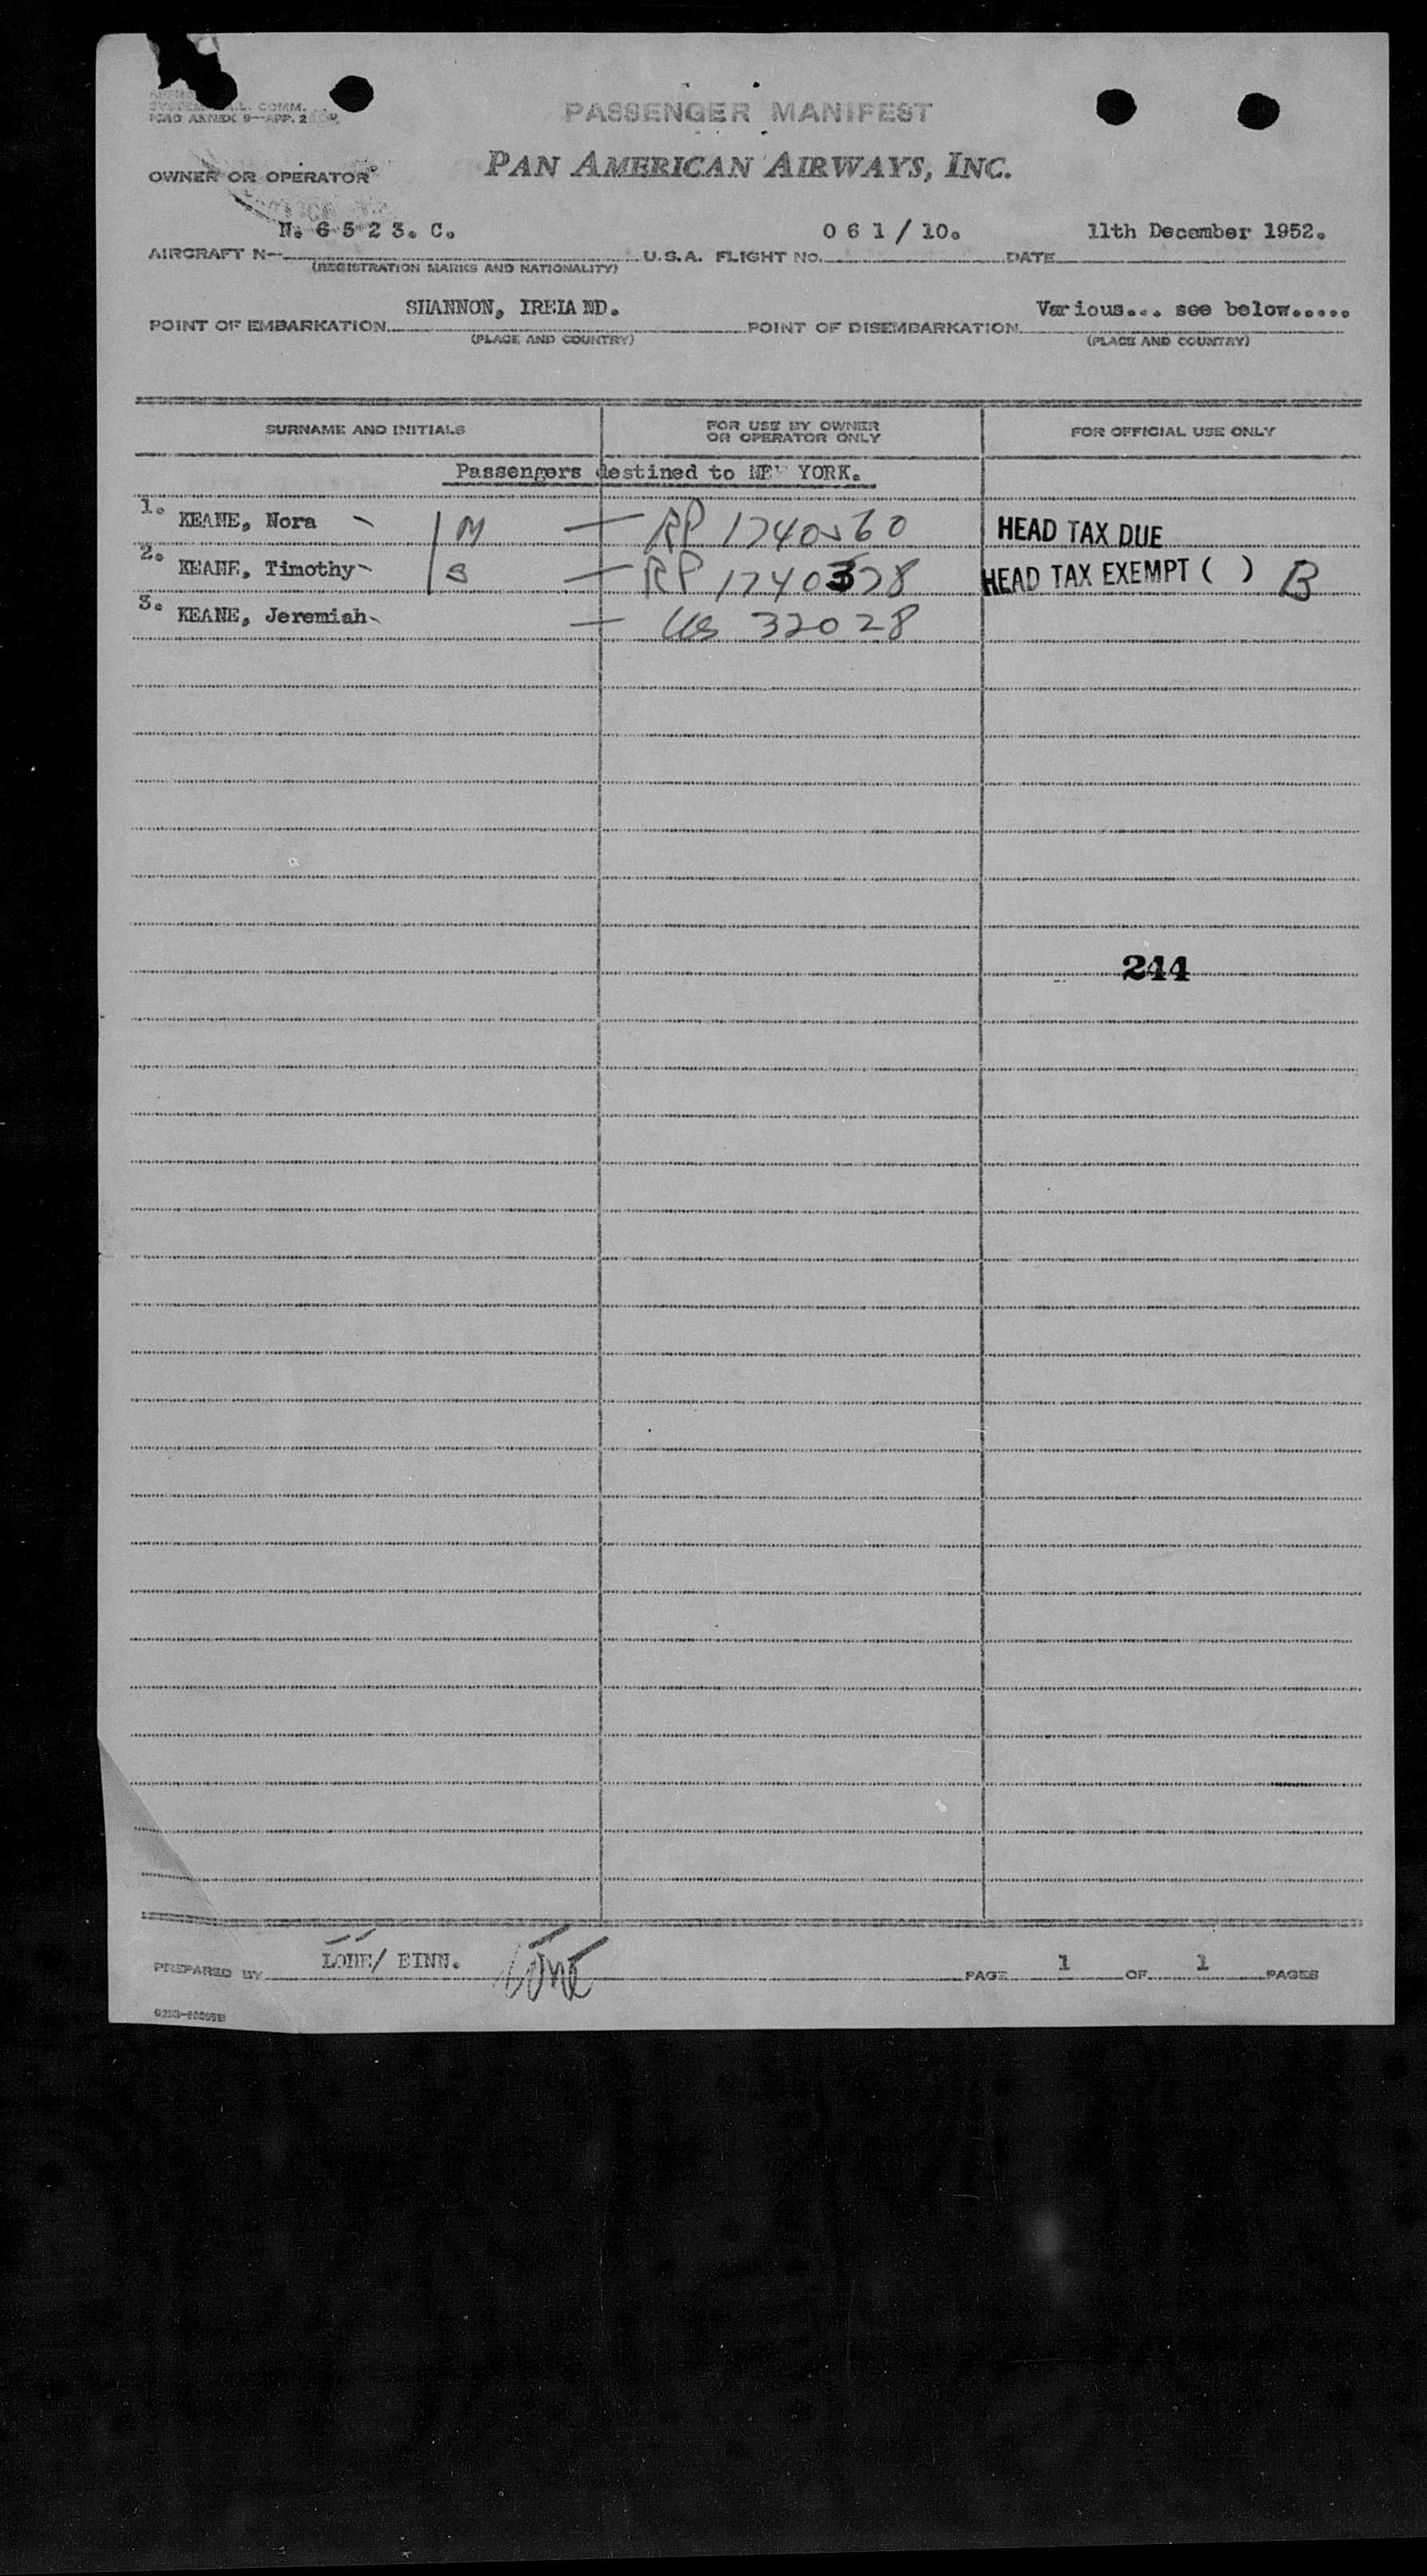 SYSTEM COMM.
ICAO ANNEX 9—APP. 2
PASSENGER MANIFEST
PAN AMERICAN AIRWAYS, INC.
OWNER OR OPERATOR
AIRCRAFT N— N. 6 5 2 3. C. U.S.A. FLIGHT NO. 0 6 1 / 10. DATE 11th December 1952.
(REGISTRATION MARKS AND NATIONALITY)
POINT OF EMBARKATION SHANNON, IRELAND. POINT OF DISEMBARKATION Various... see below.....
(PLACE AND COUNTRY) (PLACE AND COUNTRY)
SURNAME AND INITIALS FOR USE BY OWNER OR OPERATOR ONLY FOR OFFICIAL USE ONLY
Passengers destined to NEW YORK.
1. KEANE, Nora M — RP 1740560 HEAD TAX DUE
2. KEANE, Timothy S — RP 1740578 HEAD TAX EXEMPT ( ) B
3. KEANE, Jeremiah — US 32028
244
PREPARED BY LONE/ EINN. PAGE 1 OF 1 PAGES